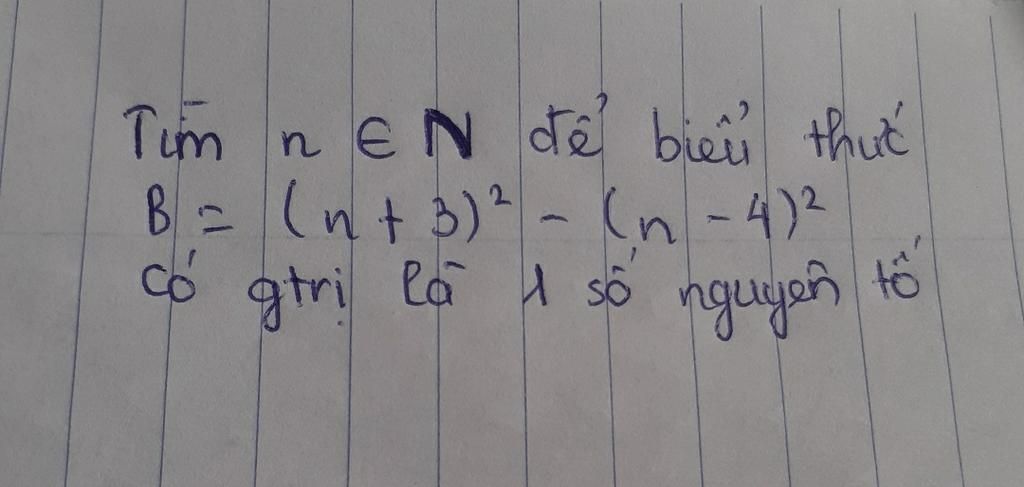 Tìm n ∈ N để biểu thức
B = (n + 3)² - (n - 4)²
có gtrị là 1 số nguyên tố